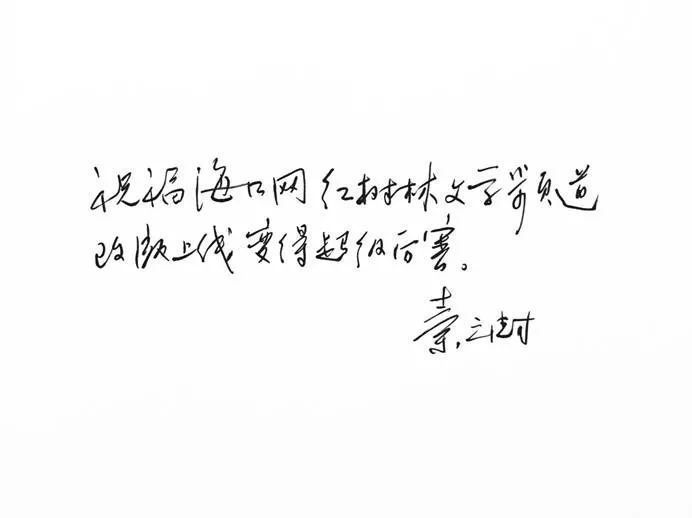 祝福海口网红树林文学频道
改版上线变得超级厉害。